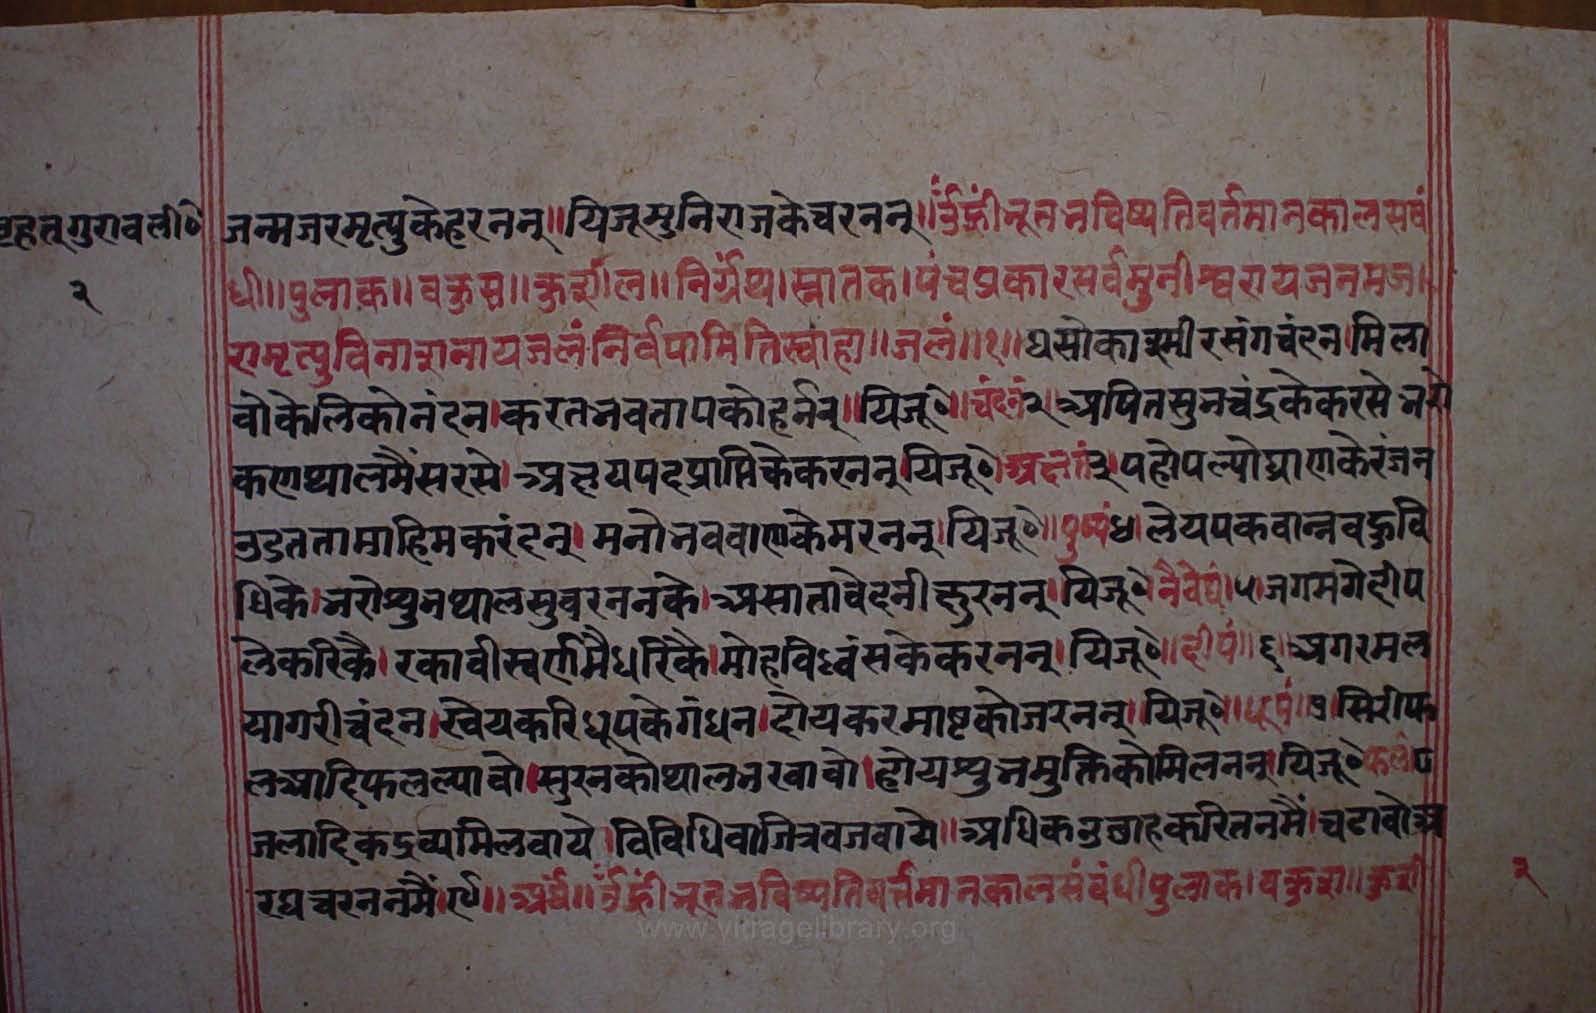 बृहत् गुरावली०
२
जन्मजरमृत्युकेहरननन्॥यजिूमुनिराजकेचरननन्॥ॐह्रींभूतभविष्यतिवर्तमानकालसबं
धी॥पुलाक॥वकुस॥कुशील॥निर्ग्रंथ।स्नातक।पंचप्रकारसर्वमुनीश्वरायजनमज।
रामृत्युविनाशनायजलंनिर्वपामितिस्वाहा॥जलं॥१॥घसोकाश्मीरसंगचंदन।मिला
वोकेलिकोनंदन।करतभवतापकोहर्नन्॥यजिू०॥चंदनं२।अषितसुनचंद्रकेकरसेभरो
कणथालमैंसरसे।अक्षयपदप्राप्तिकेकरननन्।यजिू०अक्षतं३।पहोपल्योघ्राणकेरंजन
उडततामाहिमकरंदन्।मनोभववाणकेमरननन्।यजिू०॥पुष्पं४।लेयपकवान्नवहुवि
धिके।भरोश्युभथालसुवरननके।असातावेदनीदुरननन्।यजिू०नैवेद्यं।५।जगमगेदीप
लेकरिकै।रकावीस्वर्णमैंधरिकै।मोहविध्वंसकेकरननन्।यजिू०॥दीपं॥६॥अगरमल
यागरीचंदन।खेयकरिधूपकेगंधन।होयकरमाष्टकोजरननन्।यजिू०॥धूपं॥७।सिरीफ
लआदिफलल्यावो।सुरनकोथालभरवावो।होयश्युभमुक्तिकोमिलननन्।यजिू०फलं८
जलादिकद्रव्यमिलवाये।विविधिवाजित्रवजवाये॥अधिकउछाहकरितनमैं।चढावोअ
रघचरननमैं।९॥अर्घं॥ॐह्रींभूतभविष्यतिवर्तमानकालसंबंधीपुलाक।वकुश॥कुशी
२